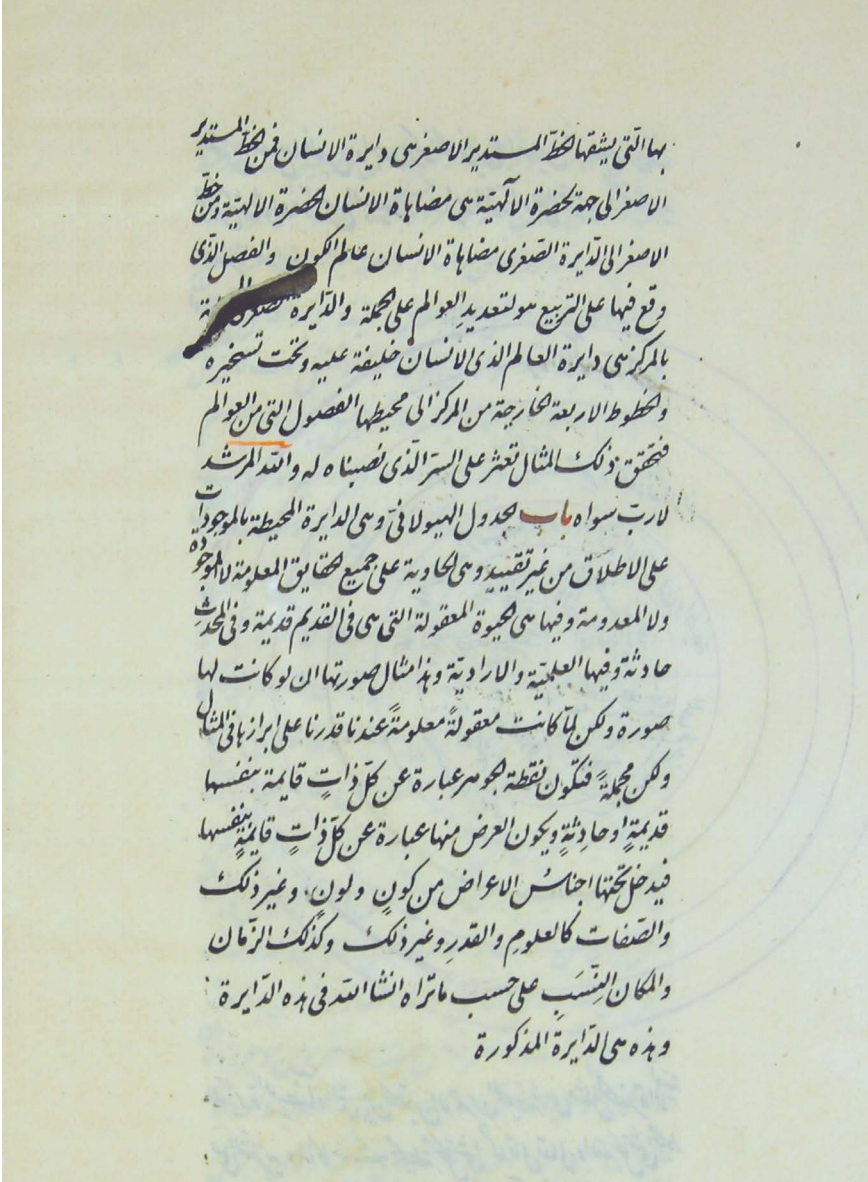 بها التى يشقها الخط المستدير الاصغر هى دايرة الانسان فمن الخط المستدير
الاصغر الى جهة الحضرة الآلهيّة هى مضاهاة الانسان الحضرة الالهيّة ومن خط
الاصغر الى الدّايرة الصّغرى مضاهاة الانسان عالم الكون والفصل الذّى
وقع فيها على التربيع هو لتعديدِ العوالم على الجملة والدّايرة الصغرى
بالمركز هى دايرة العالم الذى الانسان خليفة عليه وتحت تسخيره
والخطوط الاربعة الخارجة من المركز الى محيطها الفصول التى من العوالم
فتحقق ذلك المثال تعثر على السرّ الّذى نصبناه له والله المرشد
لا ربّ سواه باب الجدول الهيولانىّ وهى الدايرة المحيطة بالموجودات
على الاطلاق من غير تقييدٍ وهى الحاوية على جميع الحقايق المعلومة لا الموجودة
ولا المعدومة وفيها هى الحيوة المعقولة التى هى فى القديم قديمة وفى المحدثِ
حادثة وفيها العلميّة والاراديّة وهذا مثال صورتها ان لو كانت لها
صورة ولكن لمّا كانت معقولةً معلومةً عندنا قدرنا على ابرازها فى المثال
ولكن مجملةً فتكون نقطة الجوهر عبارة عن كلّ ذاتٍ قايمة بنفسها
قديمةٍ او حادثةٍ ويكون العرض منها عبارة عن كلّ ذاتٍ قايمةٍ بنفسها
فيدخل تحتها اجناسُ الاعراض من كونٍ ولونٍ. وغير ذلك
والصّفات كالعلومِ والقدرِ وغير ذلك وكذلك الزّمان
والمكان النِّسَبِ على حسب ما تراه انشا الله فى هذه الدّايرة
وهذه هى الدّايرة المذكورة